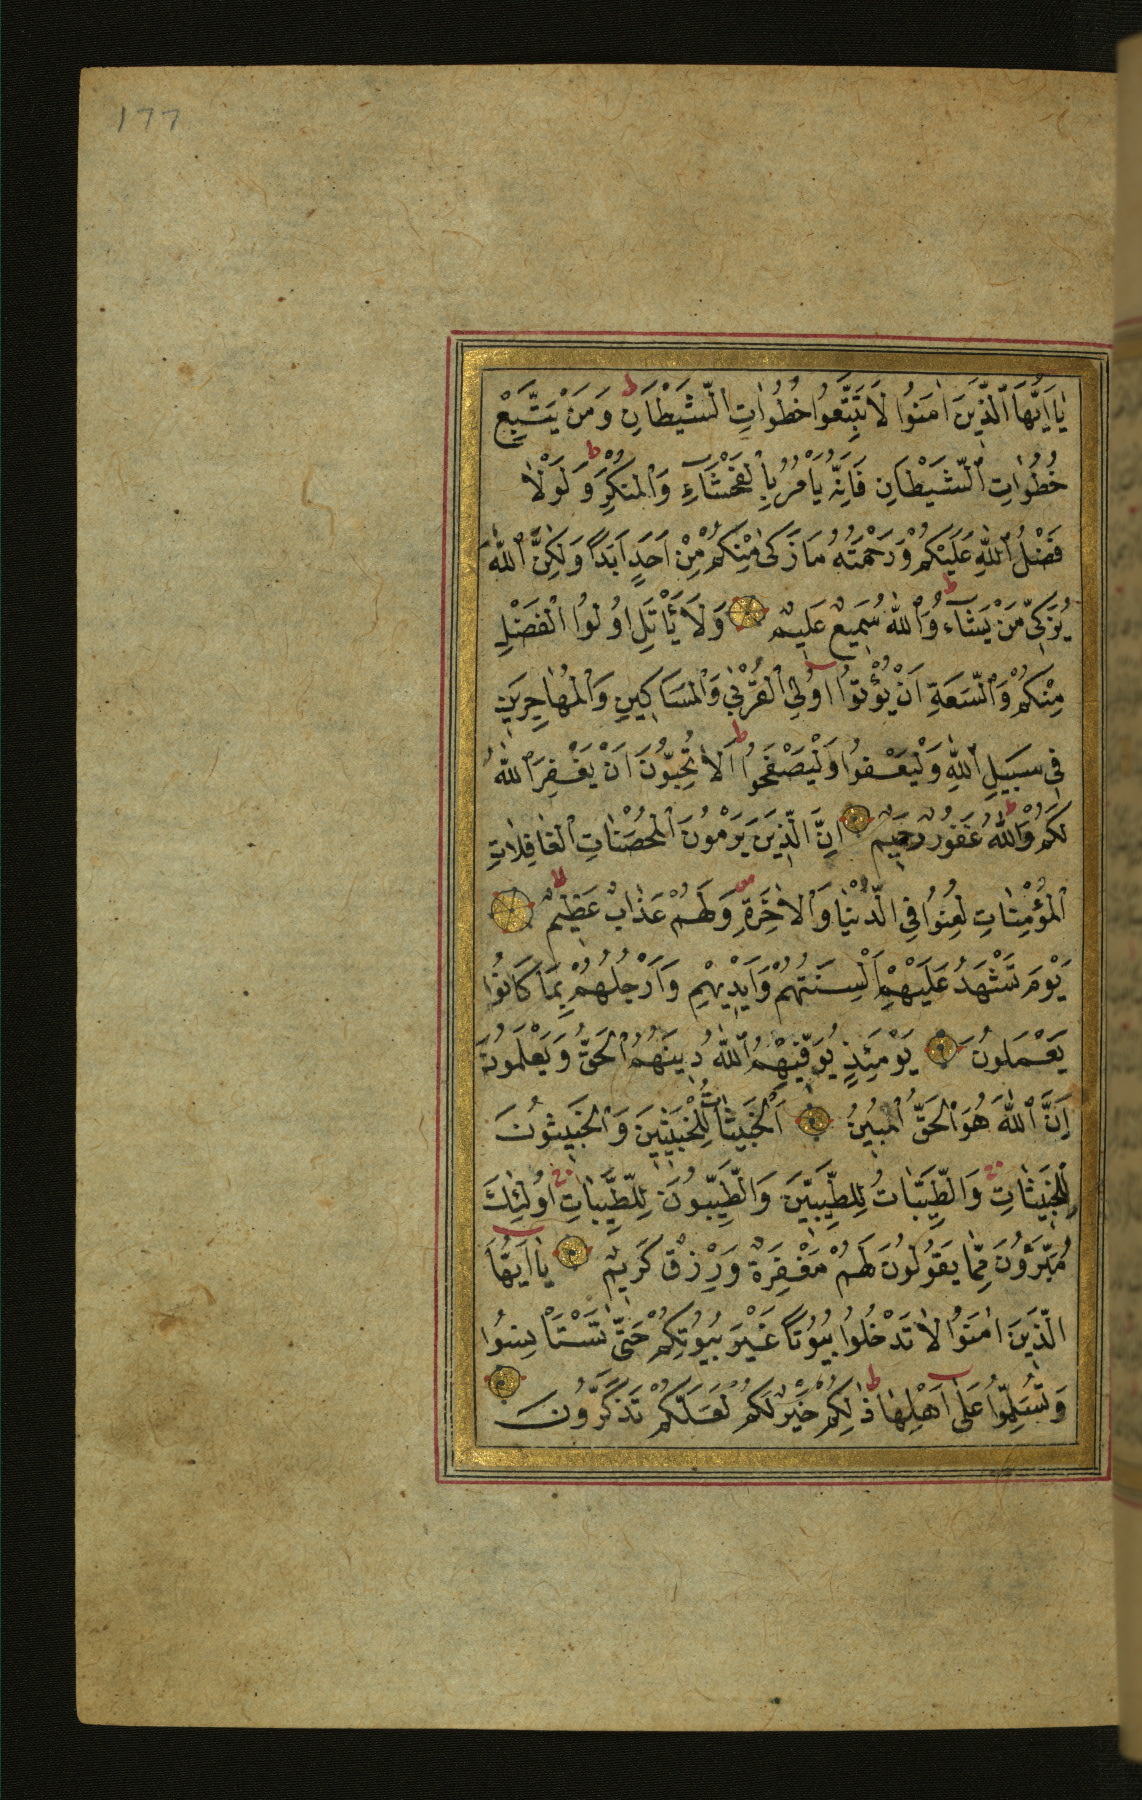 ١٧٧
يَا اَيُّهَا ٱلَّذِينَ اٰمَنُوا لَا تَتَّبِعُوا خُطُوَاتِ ٱلشَّيْطَانِ ط وَمَنْ يَتَّبِعْ
خُطُوَاتِ ٱلشَّيْطَانِ فَاِنَّهُ يَأْمُرُ بِٱلْفَحْشَاءِ وَٱلْمُنْكَرِ ط وَلَوْلَا
فَضْلُ ٱللّٰهِ عَلَيْكُمْ وَرَحْمَتُهُ مَا زَكٰى مِنْكُمْ مِنْ اَحَدٍ اَبَدًا وَلٰكِنَّ ٱللّٰهَ
يُزَكِّي مَنْ يَشَاءُ ط وَٱللّٰهُ سَمِيعٌ عَلِيمٌ وَلَا يَأْتَلِ اُولُوا ٱلْفَضْلِ
مِنْكُمْ وَٱلسَّعَةِ اَنْ يُؤْتُوا اُولِي ٱلْقُرْبٰى وَٱلْمَسَاكِينَ وَٱلْمُهَاجِرِينَ
فِي سَبِيلِ ٱللّٰهِ وَلْيَعْفُوا وَلْيَصْفَحُوا ط اَلَا تُحِبُّونَ اَنْ يَغْفِرَ ٱللّٰهُ
لَكُمْ ط وَٱللّٰهُ غَفُورٌ رَحِيمٌ اِنَّ ٱلَّذِينَ يَرْمُونَ ٱلْمُحْصَنَاتِ ٱلْغَافِلَاتِ
ٱلْمُؤْمِنَاتِ لُعِنُوا فِي ٱلدُّنْيَا وَٱلْاٰخِرَةِ ص وَلَهُمْ عَذَابٌ عَظِيمٌ لا
يَوْمَ تَشْهَدُ عَلَيْهِمْ اَلْسِنَتُهُمْ وَاَيْدِيهِمْ وَاَرْجُلُهُمْ بِمَا كَانُوا
يَعْمَلُونَ يَوْمَئِذٍ يُوَفِّيهِمُ ٱللّٰهُ دِينَهُمُ ٱلْحَقَّ وَيَعْلَمُونَ
اَنَّ ٱللّٰهَ هُوَ ٱلْحَقُّ ٱلْمُبِينُ اَلْخَبِيثَاتُ لِلْخَبِيثِينَ وَٱلْخَبِيثُونَ
لِلْخَبِيثَاتِ ج وَٱلطَّيِّبَاتُ لِلطَّيِّبِينَ وَٱلطَّيِّبُونَ لِلطَّيِّبَاتِ ج اُولٰئِكَ
مُبَرَّؤُنَ مِمَّا يَقُولُونَ لَهُمْ مَغْفِرَةٌ وَرِزْقٌ كَرِيمٌ يَا اَيُّهَا
ٱلَّذِينَ اٰمَنُوا لَا تَدْخُلُوا بُيُوتًا غَيْرَ بُيُوتِكُمْ حَتّٰى تَسْتَأْنِسُوا
وَتُسَلِّمُوا عَلٰى اَهْلِهَا ط ذٰلِكُمْ خَيْرٌ لَكُمْ لَعَلَّكُمْ تَذَكَّرُونَ